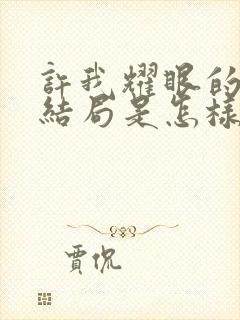 許我耀眼的
結局是怎樣
賈侃